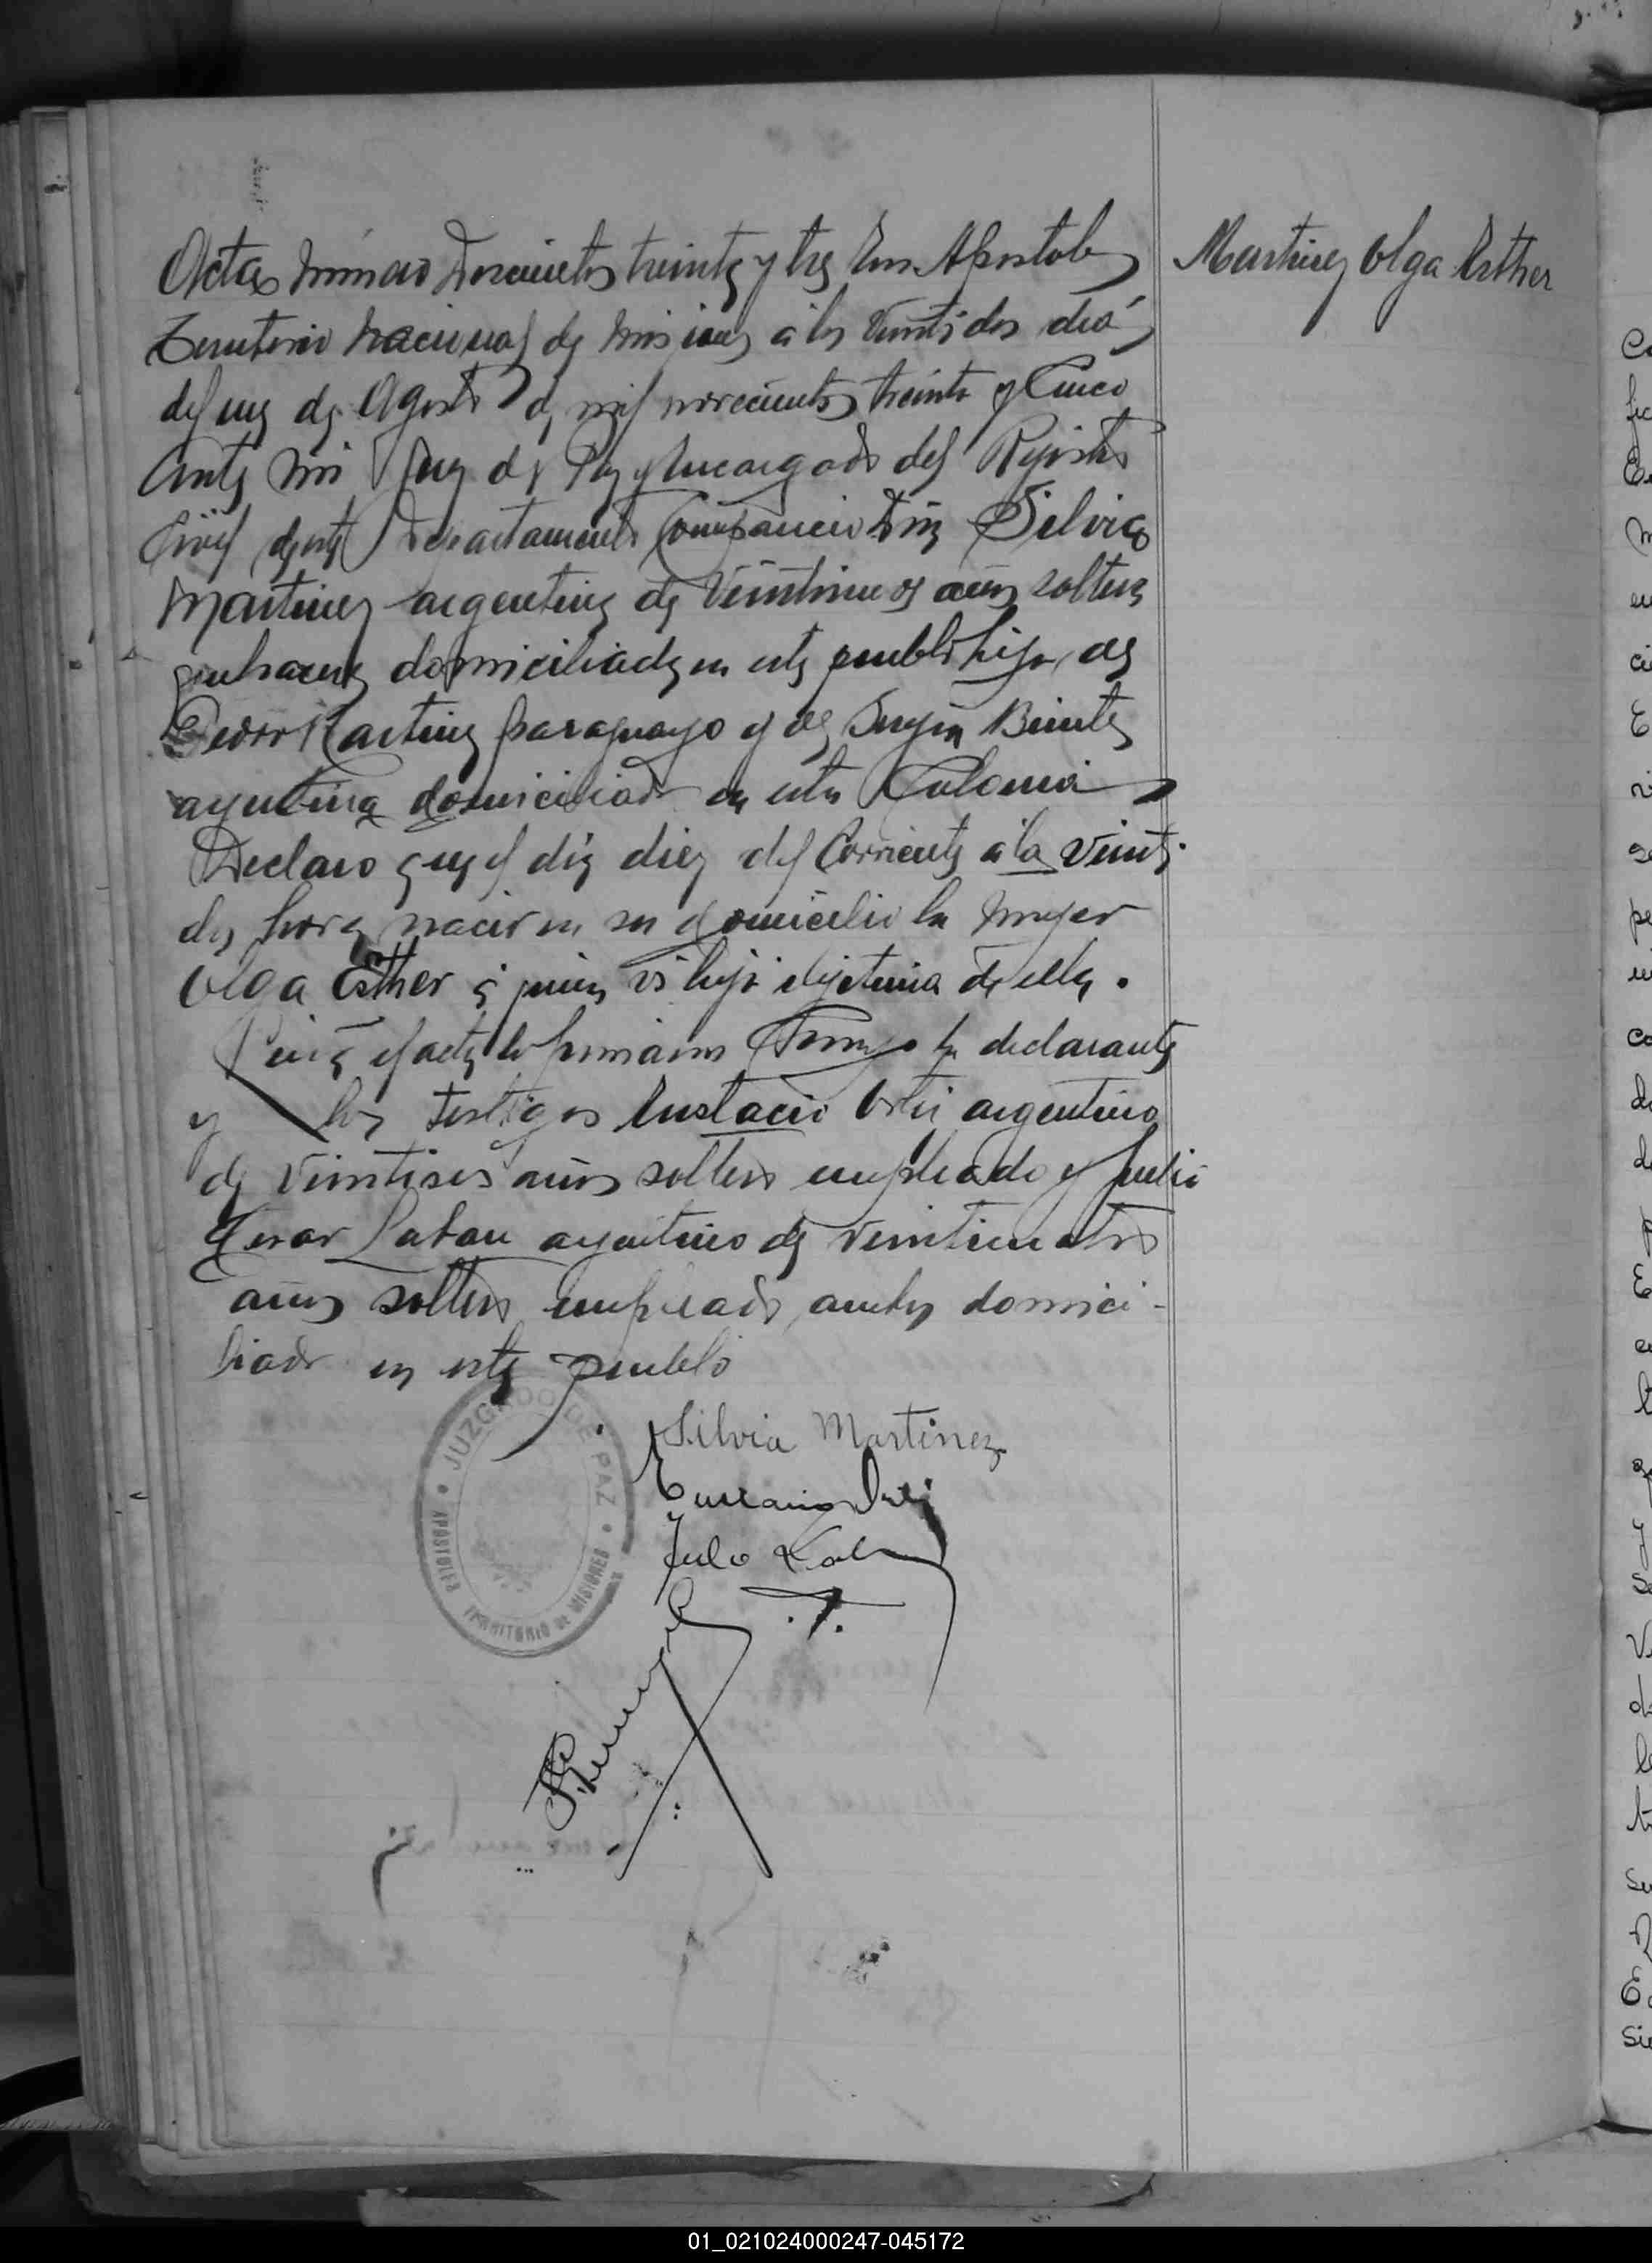 Acta número Doscientos treinta y tres En Apostoles
Martinez Olga Esther
Territorio Nacional de Misiones a los Veinti dos dias
del mes de Agosto de mil novecientos treinta y Cinco
Ante mi Juez de Paz y Encargado del Registro
Civil de este Departamento Compareció Silvia
Martinez argentina de años soltera
domiciliada en este pueblo hija de
Pedro Martinez paraguayo y de
argentina domiciliado en esta Colonia
Declaro que el dia diez del Corriente a la Veinti
dos horas nacio en su domicilio la mujer
Olga Esther a quien vi hija de ella.
Leida el acta la firmaron Conmigo la declarante
y los testigos Eustacio Ortiz argentino
de Veintiseis años soltero empleado y Julio
Cesar argentino de Veinticuatro
años soltero empleado ambos domici-
liado en este pueblo
JUZGADO DE PAZ
APOSTOLES
TERRITORIO de MISIONES
Silvia Martinez
Julio
01_021024000247-045172